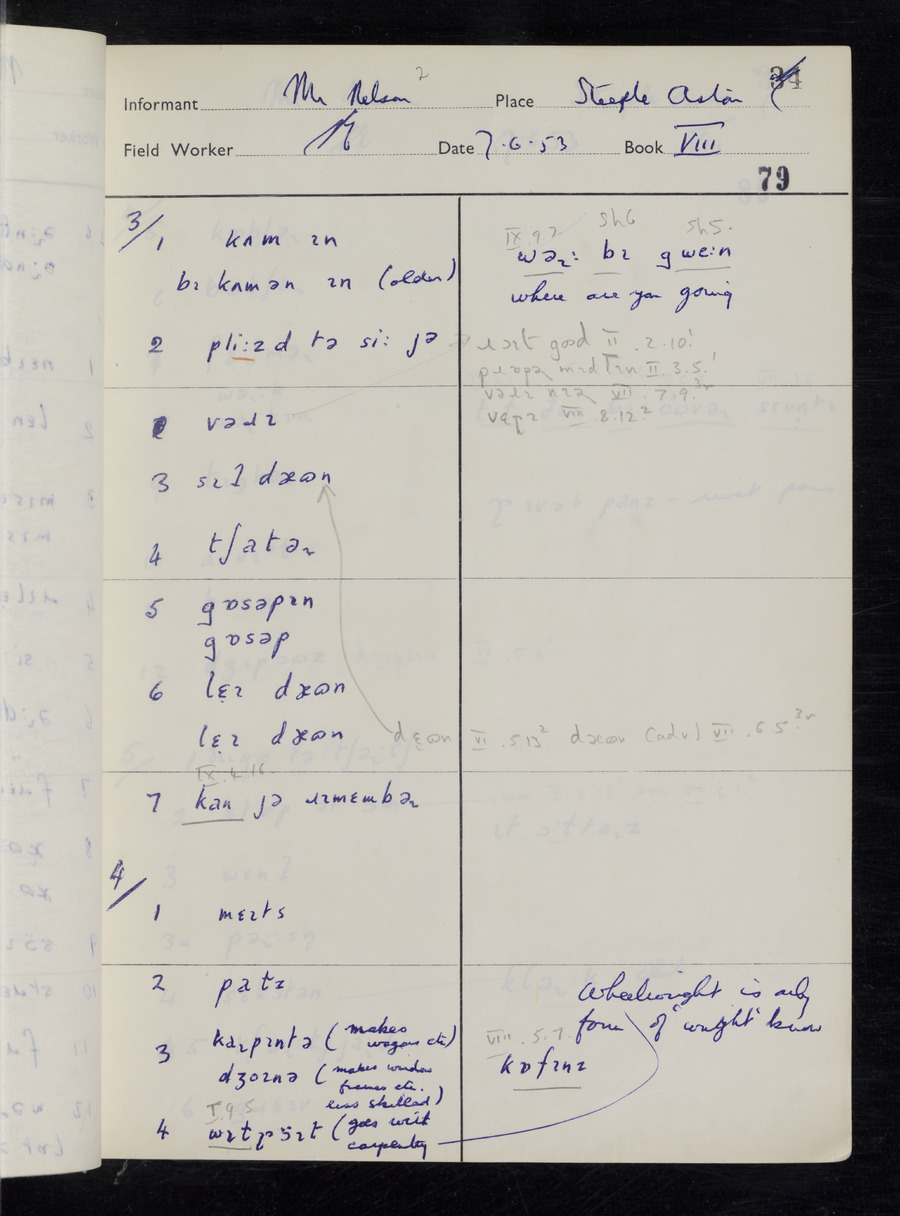 34
Informant Mr Nelson 2 Place Steeple Aston
Field Worker Date 7.6.53 Book VIII
79
3/
1 kʌm ɪn
bɪ kʌmən ɪn (older)
2 pli:zd tə si: jə
vəɹɪ
3 sɪt dæʊn
4 tʃatəɹ
5 gɒsəpɪn
gɒsəp
6 lɛɪ dæʊn
lɛɪ dæʊn
IX.4.16.
7 kan jə ɹɪmɛmbəɹ
4/
1 mɛɪts
2 patɪ
3 kaɹpɪntə (makes wagons etc)
dʒɔɪnə (makes window frames etc. less skilled)
I.9.5
4 (goes with carpentry
IX.9.7. Sh6 Sh5.
wəɹ: bɪ gwe:n
where are you going
ɹəɪt good II.2.10.
II.3.5.
VII.7.9.
VIII.8.12 2
dɛʊn VI.5.13 2 dæʊn (adv) VII.6.5
Wheelwright is only
form of "wright" known
VIII.5.7.
kɒfɪnz